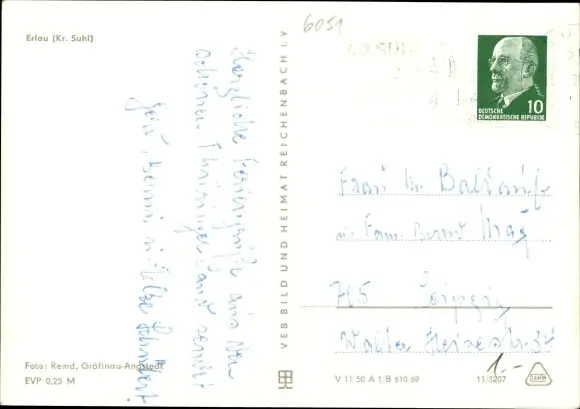 6051
Erlau (Kr. Suhl)
Herzliche Feriengrüße aus dem
schönen Thüringer Land sendet
VEB BILD UND HEIMAT REICHENBACH I. V.
10
DEUTSCHE
DEMOKRATISCHE REPUBLIK
Frau M.
Fam. Bernd May
705 Leipzig
Walter Str. 34
Foto: Remd, Gräfinau-Angstedt
EVP 0,25 M
V 11 50 A 1/B 610/69
11/3207
1.-